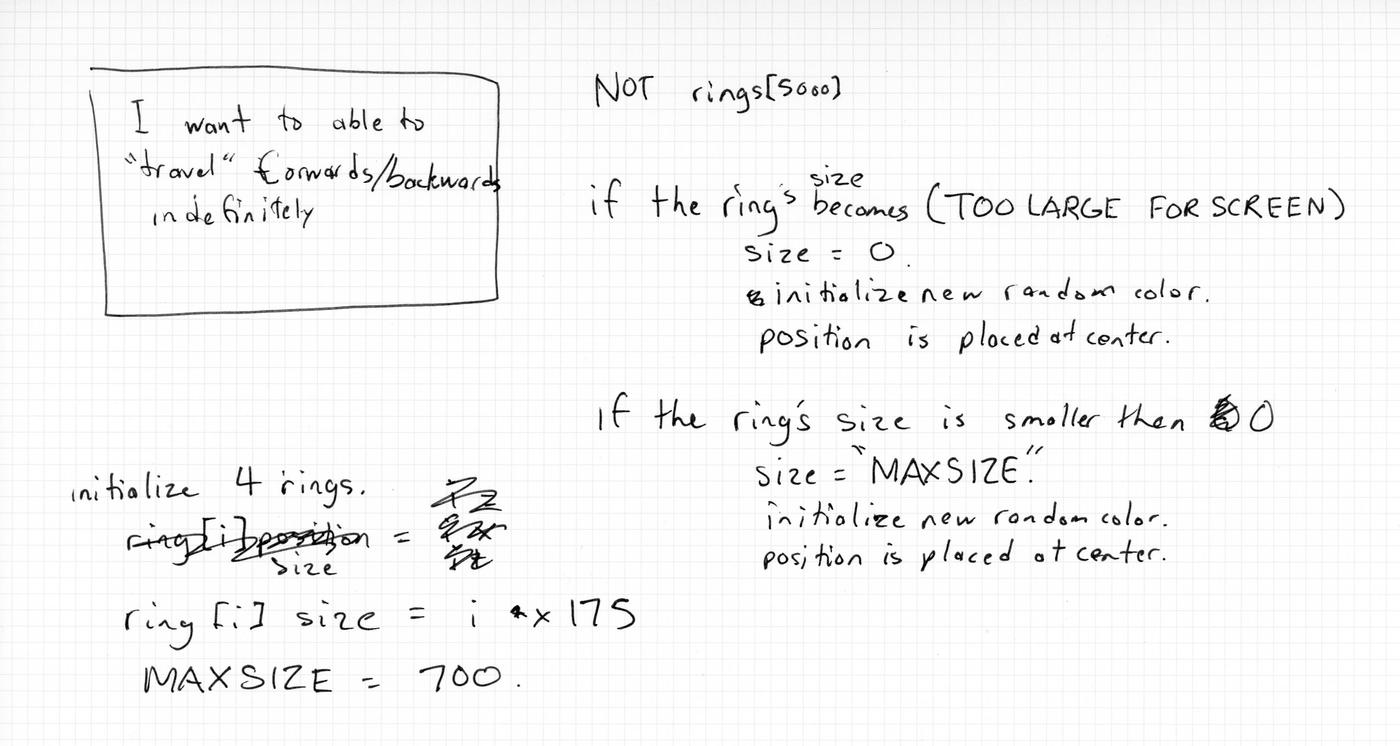 I want to able to
"travel" forwards/backwards
indefinitely
NOT rings[5000]
if the ring's size becomes (TOO LARGE FOR SCREEN)
size = 0.
initialize new random color.
position is placed at center.
if the ring's size is smaller then 0
size = "MAXSIZE".
initialize new random color.
position is placed at center.
initialize 4 rings.
ring[i] position =
size
ring [i] size = i x 175
MAXSIZE = 700.